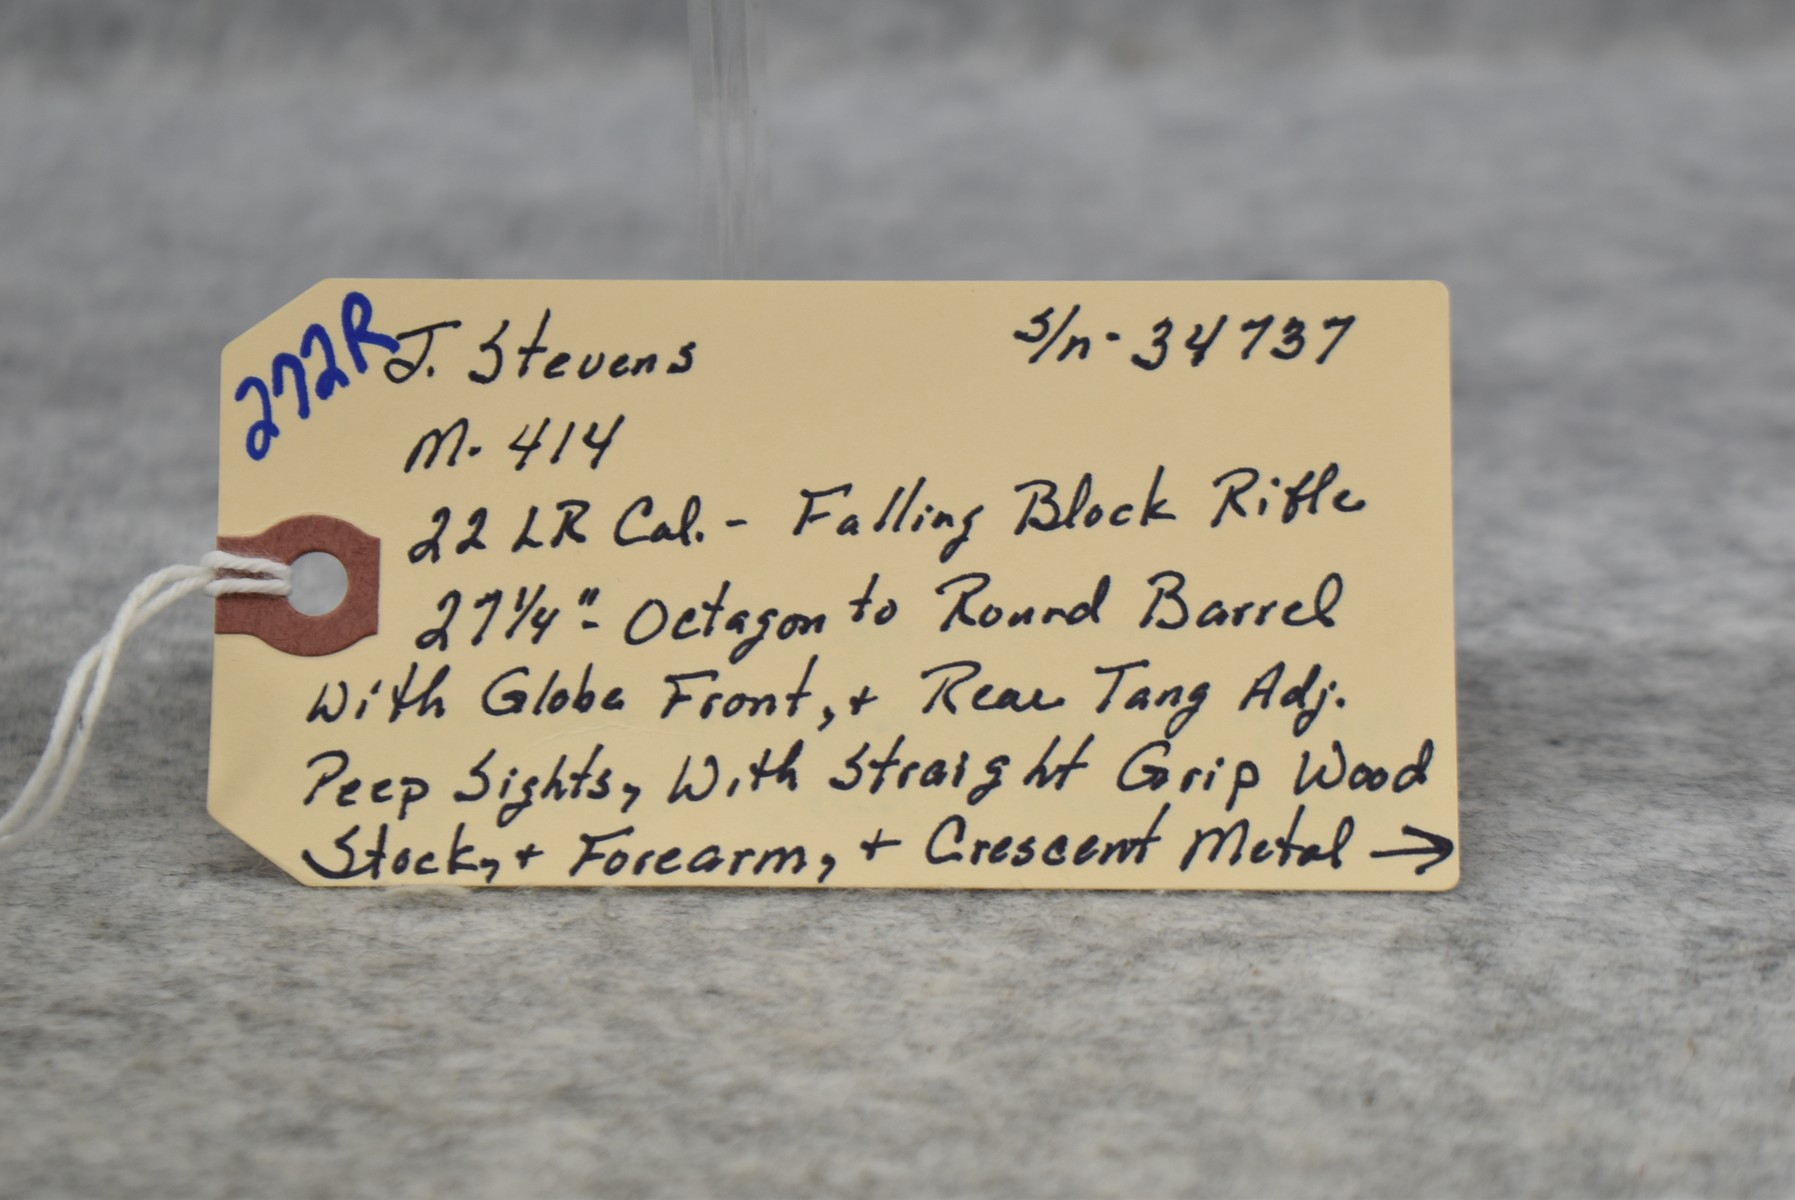 272R
J. Stevens s/n - 34737
M. 414
22 LR Cal. - Falling Block Rifle
27 1/4" - Octagon to Round Barrel
With Globe Front, + Rear Tang Adj.
Peep Sights, With Straight Grip Wood
Stock, + Forearm, + Crescent Metal →